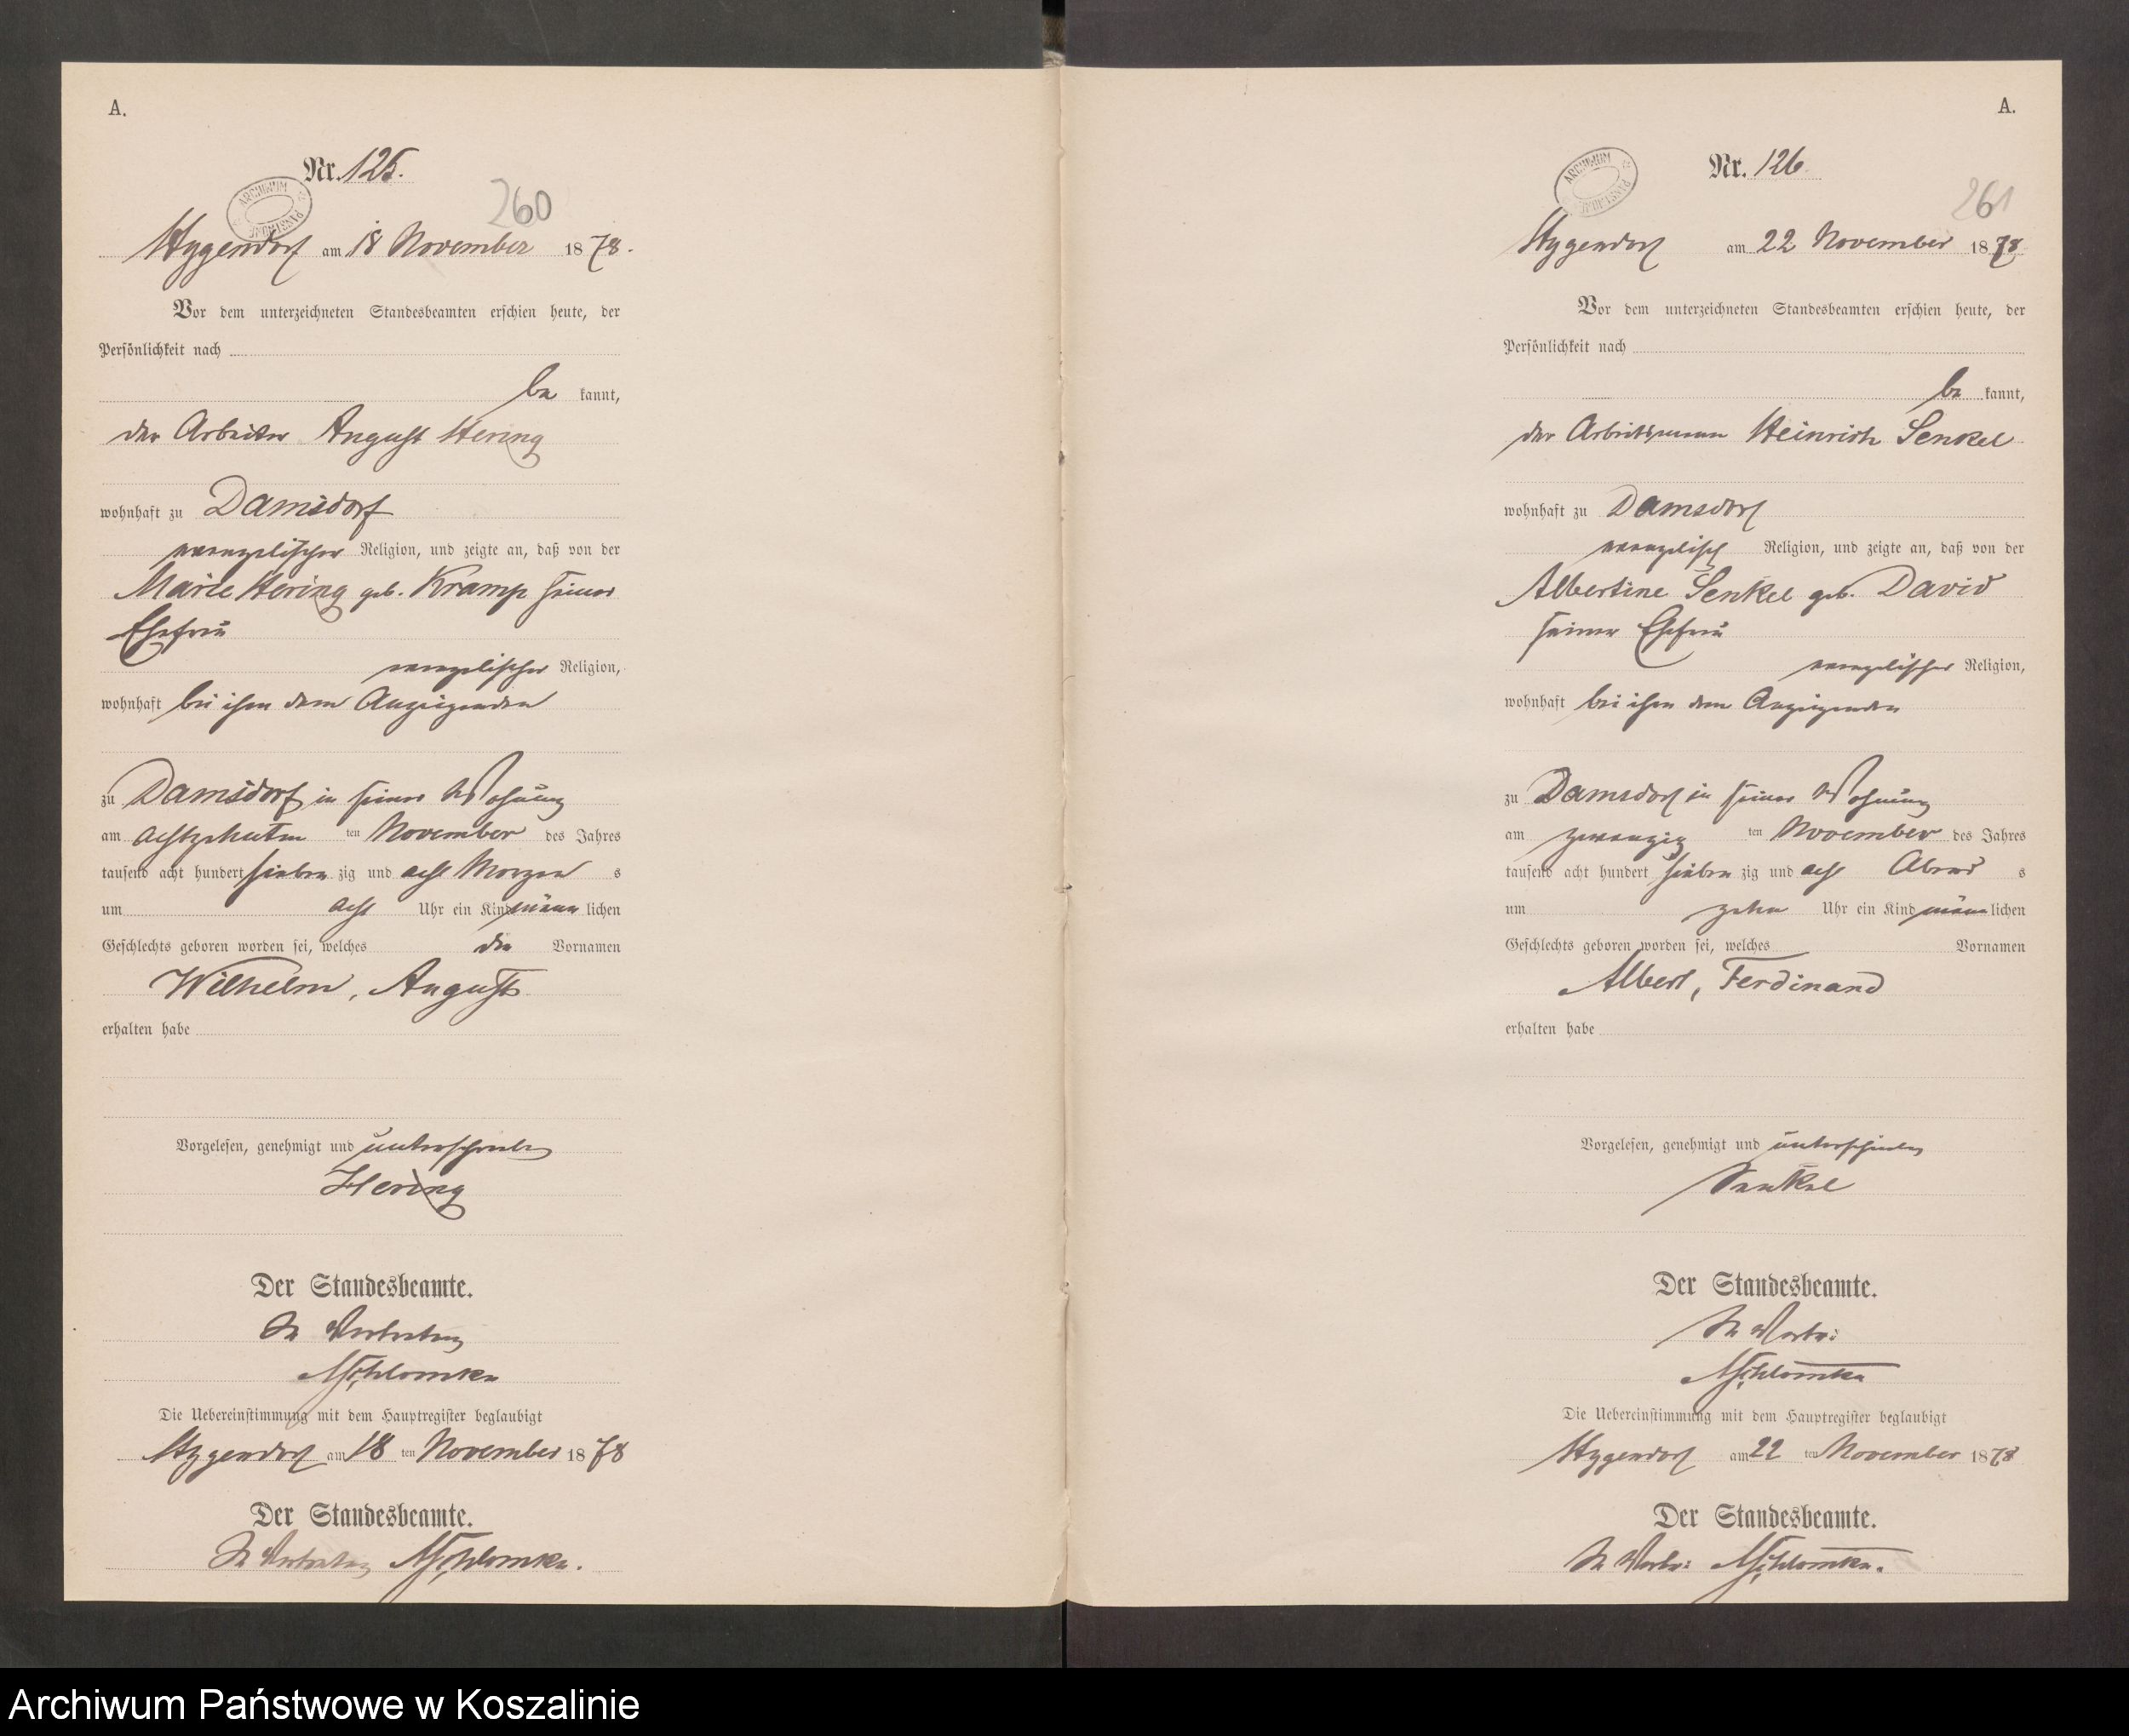 A.
Nr. 125.
ARCHIWUM PAŃSTWOWE
260
Hygendorf am 18 November 1878.
Vor dem unterzeichneten Standesbeamten erschien heute, der
Persönlichkeit nach
be kannt,
der Arbeiter August Hering
wohnhaft zu Damsdorf
evangelischer Religion, und zeigte an, daß von der
Marie Hering geb. Kramp seiner
Ehefrau
evangelischer Religion,
wohnhaft bei ihm dem Anzeigenden
zu Damsdorf in seiner Wohnung
am achtzehnten ten November des Jahres
tausend acht hundert sieben zig und acht Morgen s
um acht Uhr ein Kind männ lichen
Geschlechts geboren worden sei, welches die Vornamen
Wilhelm, August
erhalten habe
Vorgelesen, genehmigt und unterschrieben
Hering
Der Standesbeamte.
In Vertretung
Die Uebereinstimmung mit dem Hauptregister beglaubigt
Hygendorf am 18 ten November 1878
Der Standesbeamte.
In Vertretung
A.
Nr. 126.
ARCHIWUM PAŃSTWOWE
261
Hygendorf am 22 November 1878
Vor dem unterzeichneten Standesbeamten erschien heute, der
Persönlichkeit nach
be kannt,
der Arbeitsmann Heinrich Senkel
wohnhaft zu Damsdorf
evangelisch Religion, und zeigte an, daß von der
Albertine Senkel geb. David
seiner Ehefrau
evangelischer Religion,
wohnhaft bei ihm dem Anzeigenden
zu Damsdorf in seiner Wohnung
am zwanzig ten November des Jahres
tausend acht hundert sieben zig und acht Abend s
um zehn Uhr ein Kind männ lichen
Geschlechts geboren worden sei, welches Vornamen
Albert, Ferdinand
erhalten habe
Vorgelesen, genehmigt und unterschrieben
Senkel
Der Standesbeamte.
In Vertr:
Die Uebereinstimmung mit dem Hauptregister beglaubigt
Hygendorf am 22 ten November 1878
Der Standesbeamte.
In Vertr:
Archiwum Państwowe w Koszalinie